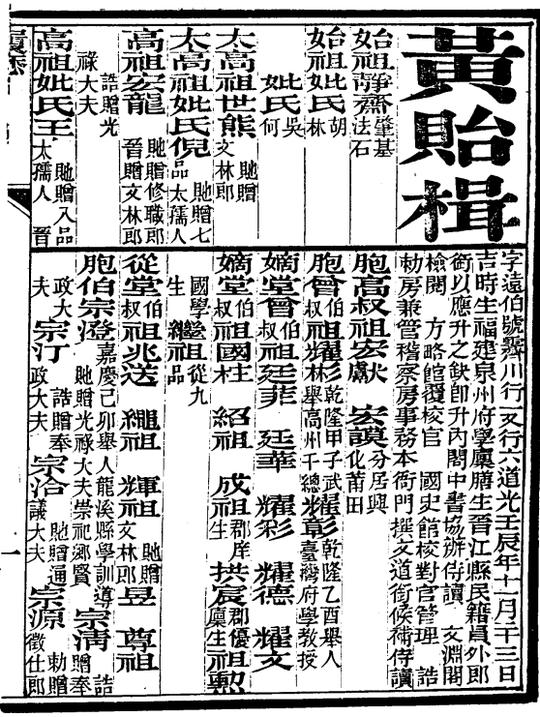 黃貽楫
始祖靜齋 肇基法石
始祖妣氏 胡林
妣氏 吳何
太高祖世熊 貤贈文林郎
太高祖妣氏倪 貤贈七品太孺人
高祖宏龍 貤贈修職郎晉贈文林郎
誥贈光祿大夫
高祖妣氏王 貤贈八品太孺人 晉
字遠伯號霽川行一又行六道光壬辰年十一月二十三日
吉時生福建泉州府學廩膳生晉江縣民籍員外郎
銜以應升之缺卽升內閣中書協辦侍讀 文淵閣
檢閱 方略館覆校官 國史館校對官管理 誥
勅房兼管稽察房事務本衙門撰文道銜候補侍讀
胞高叔祖宏猷 宏謨 分居興化莆田
胞曾伯叔祖耀彬 乾隆甲子武舉高州千總 耀彰 乾隆乙酉舉人臺灣府學教授
嫡堂曾伯叔祖廷菲 廷華 耀彩 耀德 耀文
嫡堂伯叔祖國柱 紹祖 成祖 郡庠生 拱宸 郡優廩生 祖勲
國學生 繼祖 從九品
從堂伯叔祖兆送 繩祖 輝祖 貤贈文林郎 昱 尊祖
胞伯宗澄 嘉慶己卯舉人龍溪縣學訓導貤贈光祿大夫崇祀鄉賢 宗清 誥贈奉
政大夫 宗汀 誥贈奉政大夫 宗洽 貤贈通議大夫 宗源 勅贈徵仕郎